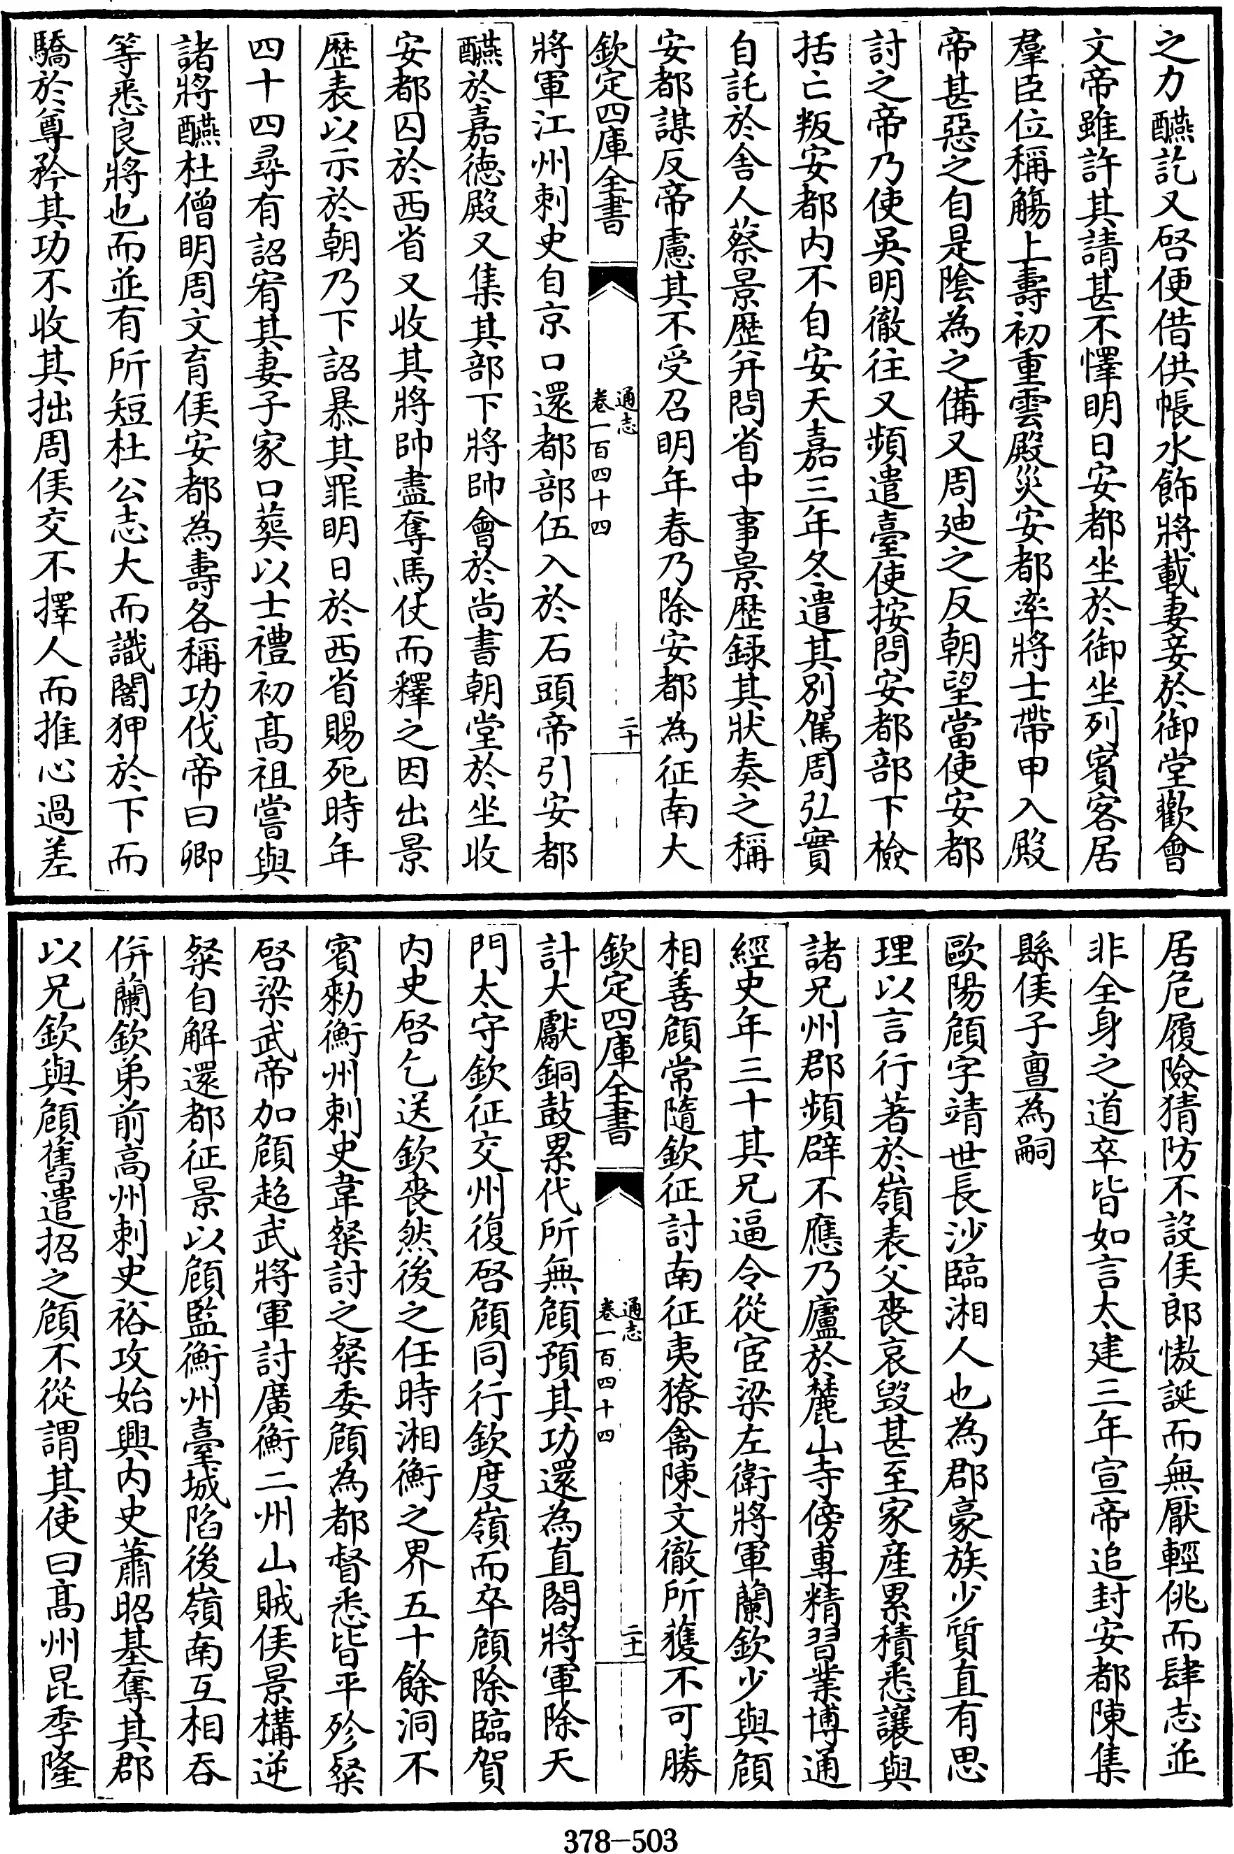 之力醼訖又啓便借供帳水飾將載妻妾於御堂歡會
文帝雖許其請甚不懌明日安都坐於御坐列賓客居
羣臣位稱觴上壽初重雲殿災安都率將士帶甲入殿
帝甚惡之自是陰為之備又周廸之反朝望當使安都
討之帝乃使吳明徹往又頻遣臺使按問安都部下檢
括亡叛安都內不自安天嘉三年冬遣其别駕周弘實
自託於舍人蔡景歴并問省中事景歴錄其狀奏之稱
安都謀反帝慮其不受召明年春乃除安都為征南大
欽定四庫全書
通志
卷一百四十四
二十
將軍江州刺史自京口還都部伍入於石頭帝引安都
醼於嘉德殿又集其部下將帥會於尚書朝堂於坐收
安都囚於西省又收其將帥盡奪馬仗而釋之因出景
歴表以示於朝乃下詔暴其罪明日於西省賜死時年
四十四尋有詔宥其妻子家口葬以士禮初髙祖嘗與
諸將醼杜僧明周文育侯安都為壽各稱功伐帝曰卿
等悉良將也而並有所短杜公志大而識闇狎於下而
驕於尊矜其功不收其拙周侯交不擇人而推心過差
居危履險猜防不設侯郎慠誕而無厭輕佻而肆志並
非全身之道卒皆如言太建三年宣帝追封安都陳集
縣侯子亶為嗣
歐陽頠字靖世長沙臨湘人也為郡豪族少質直有思
理以言行著於嶺表父喪哀毀甚至家産累積悉讓與
諸兄州郡頻辟不應乃廬於麓山寺傍專精習業博通
經史年三十其兄逼令從宦梁左衛將軍蘭欽少與頠
相善頠常隨欽征討南征夷獠禽陳文徹所獲不可勝
欽定四庫全書
通志
卷一百四十四
二十一
計大獻銅鼓累代所無頠預其功還為直閤將軍除天
門太守欽征交州復啓頠同行欽度嶺而卒頠除臨賀
內史啓乞送欽喪然後之任時湘衡之界五十餘洞不
賓勑衡州刺史韋粲討之粲委頠為都督悉皆平殄粲
啓梁武帝加頠超武將軍討廣衡二州山賊侯景構逆
粲自解還都征景以頠監衡州臺城陷後嶺南互相吞
併蘭欽弟前高州刺史裕攻始興內史蕭昭基奪其郡
以兄欽與頠舊遣招之頠不從謂其使曰髙州昆季隆
378-503